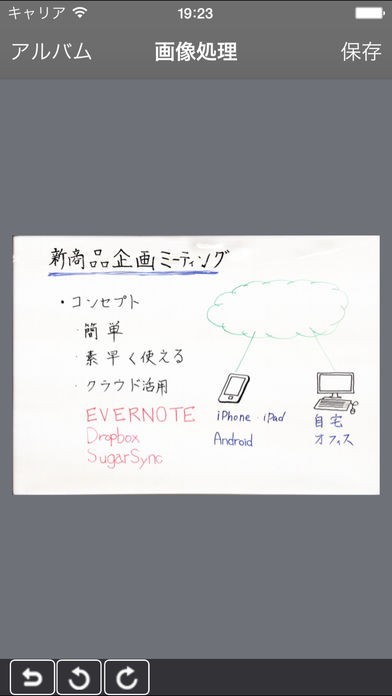 キャリア 19:23
アルバム 画像処理 保存
新商品企画ミーティング
・コンセプト
・簡単
・素早く使える
・クラウド活用
EVERNOTE
Dropbox
SugarSync
iPhone・iPad
Android
自宅
オフィス